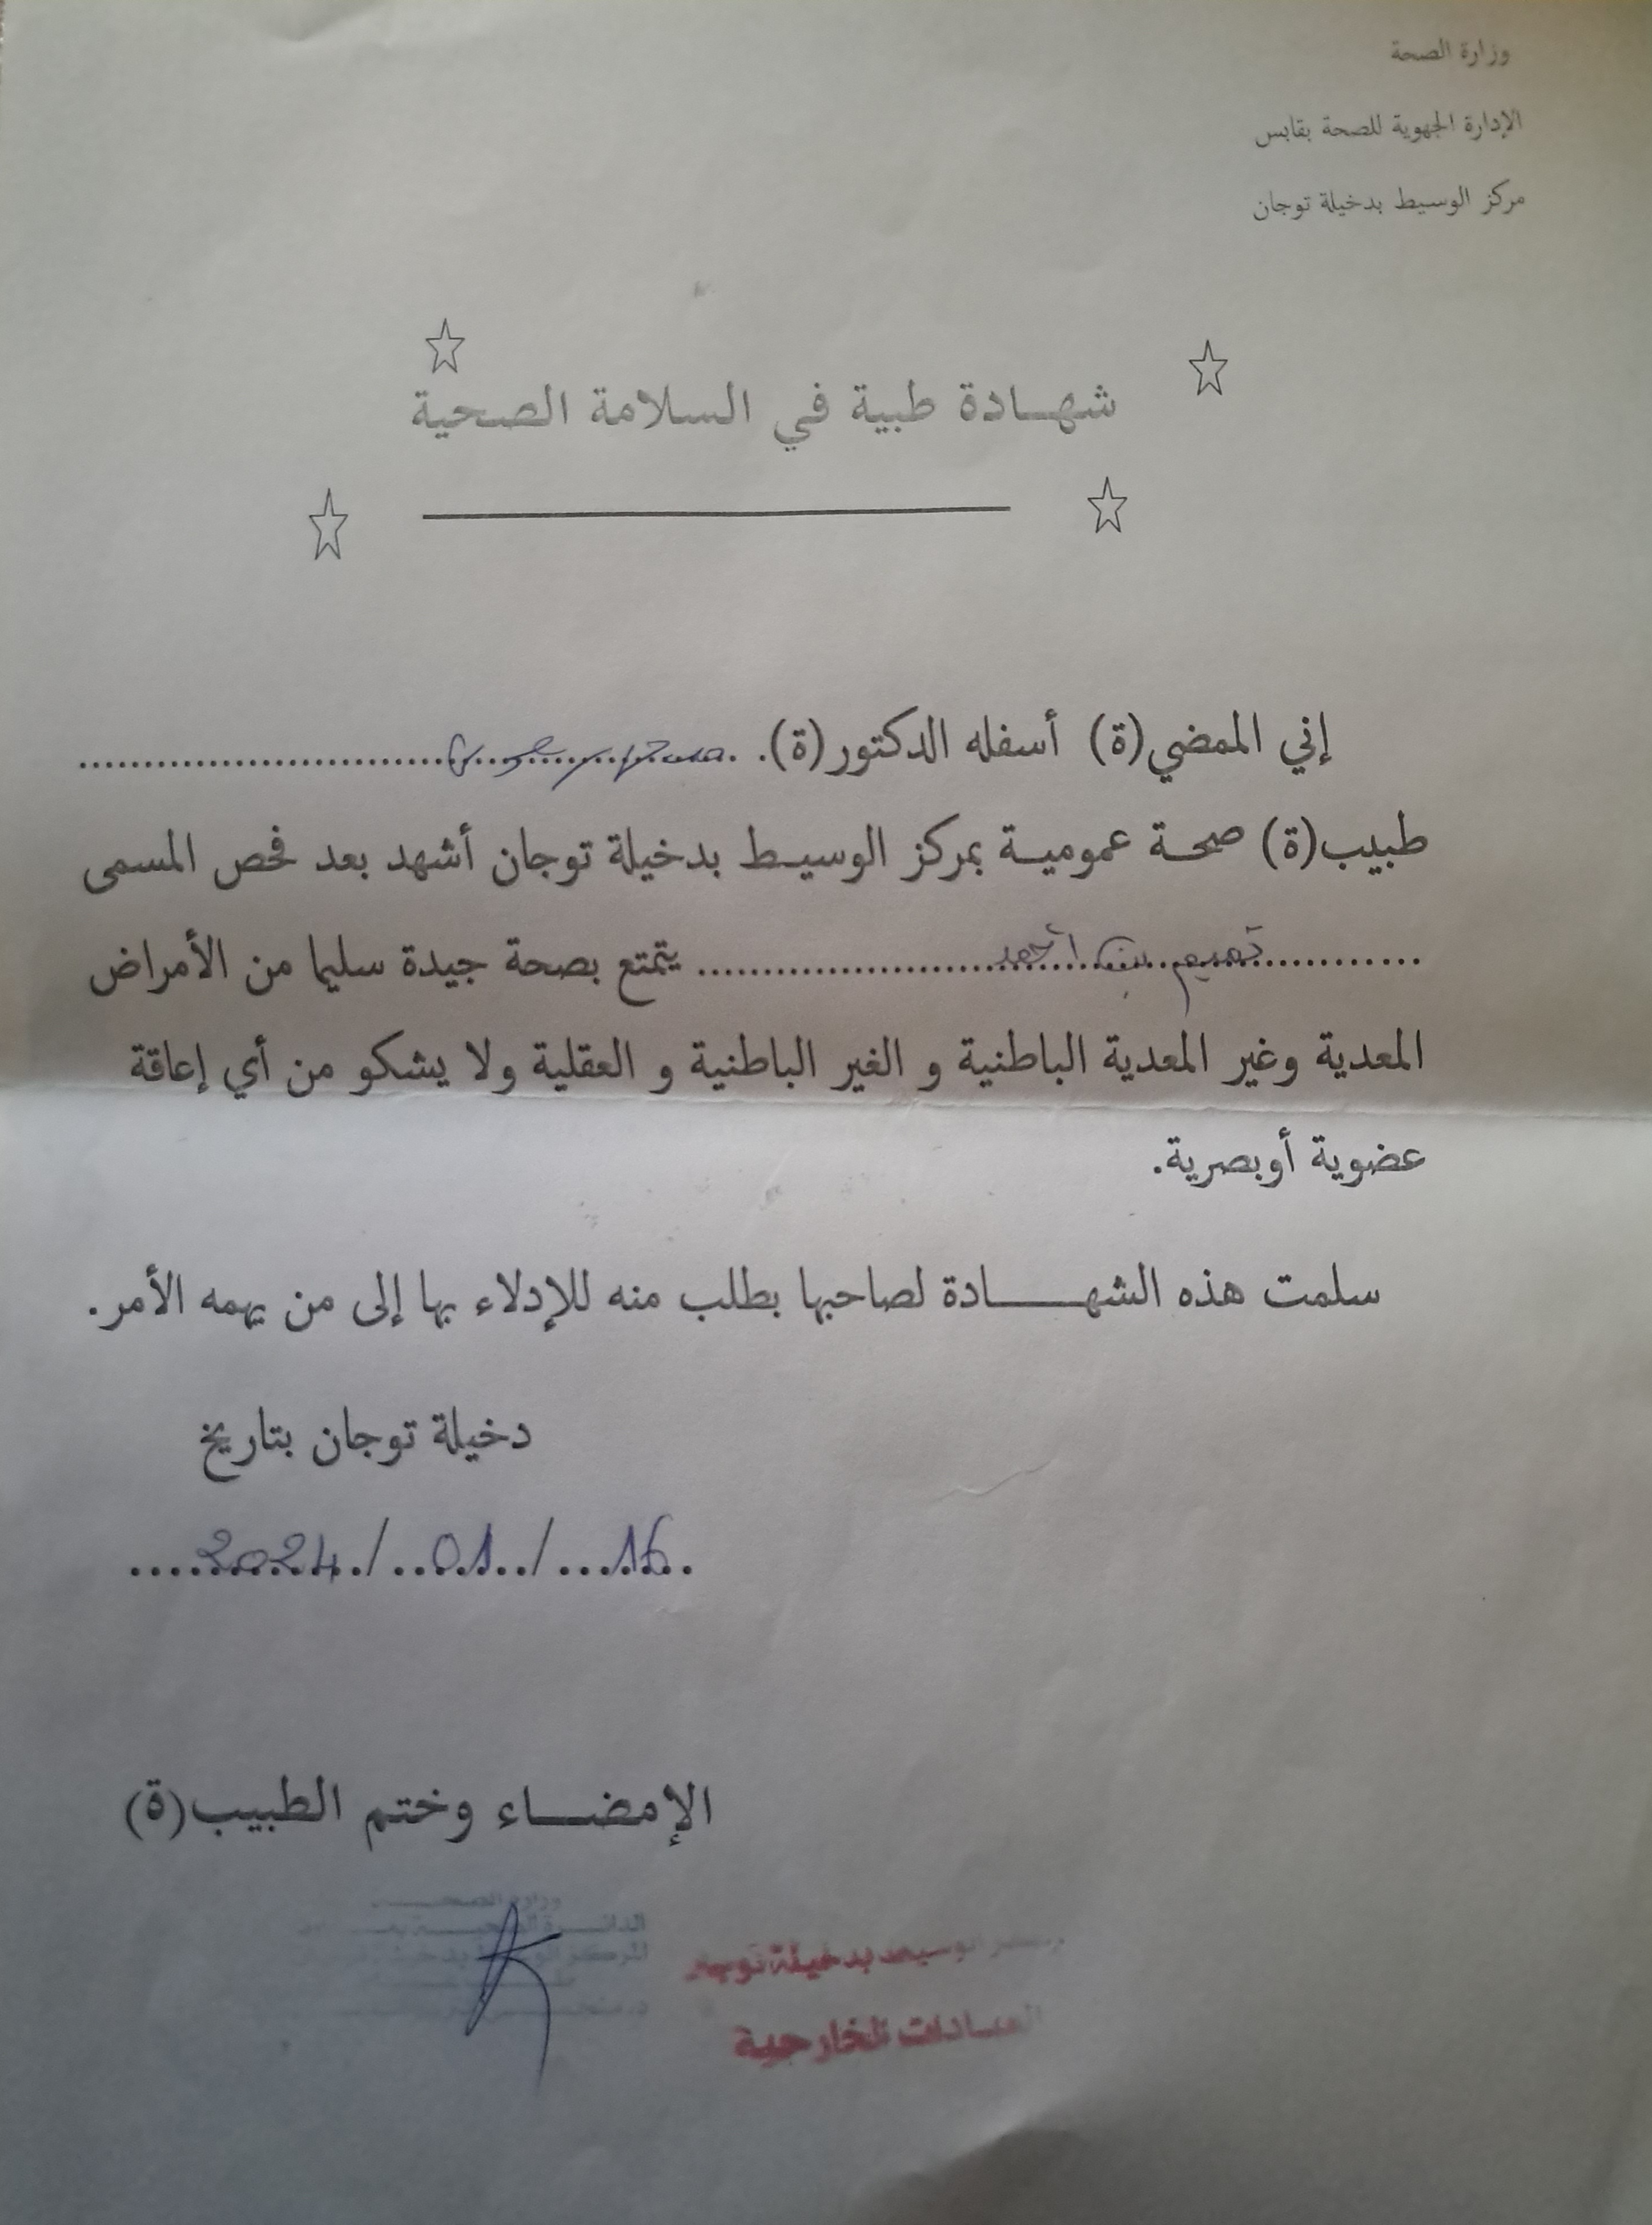 وزارة الصحة
الإدارة الجهوية للصحة بقابس
مركز الوسيط بدخيلة توجان
شهـادة طبية في السلامة الصحية
إني الممضي(ة) أسفله الدكتور(ة).
طبيب(ة) صحـة عموميـة بمركز الوسيـط بدخيلة توجان أشهد بعد فحص المسمى
تميم بن أحمد يتمتع بصحة جيدة سليما من الأمراض
المعدية وغير المعدية الباطنية و الغير الباطنية و العقلية ولا يشكو من أي إعاقة
عضوية أوبصرية.
سلمت هذه الشهـــــادة لصاحبها بطلب منه للإدلاء بها إلى من يهمه الأمر.
دخيلة توجان بتاريخ
16 / 01 / 2024
الإمضـــاء وختم الطبيب(ة)
وزارة الصحـــة
الوسيط بدخيلة
العيادات الخارجية